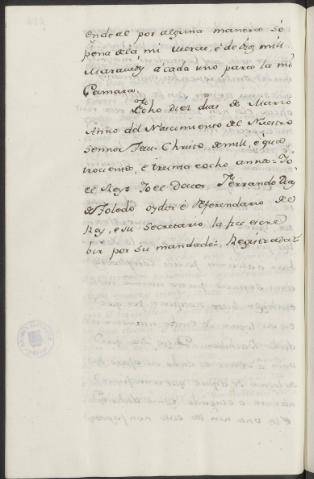 ende al por alguna manera só
pena de la mi merced, é de diez mil
Maravedis à cada uno para la mi
Camara.
Fecho diez dias de Marzo
Año del Nacimiento de Nuestro
Señor Jesu-Christo, de mill, é qua-
trocientos, é treinta e ocho annos. Yo
el Rey. Yo el Doctor, Ferrando Diaz
de Toledo oydor é Referendario del
Rey, é su Secretario, la fice escre
bir por su mandado. Registrada.